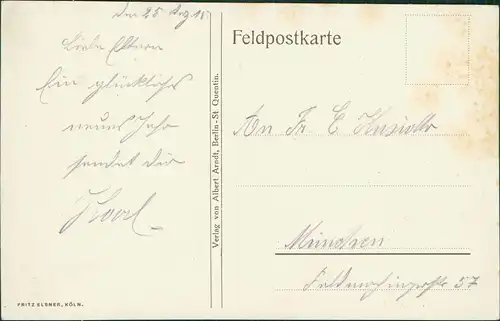 Den 25 Dez 15
Liebe Eltern
Ein glückliches
neues Jahr
sendet Dir
Karl
Verlag von Albert Arndt, Berlin-St Quentin.
Feldpostkarte
An Fr. C
München
57
FRITZ ELSNER, KÖLN.